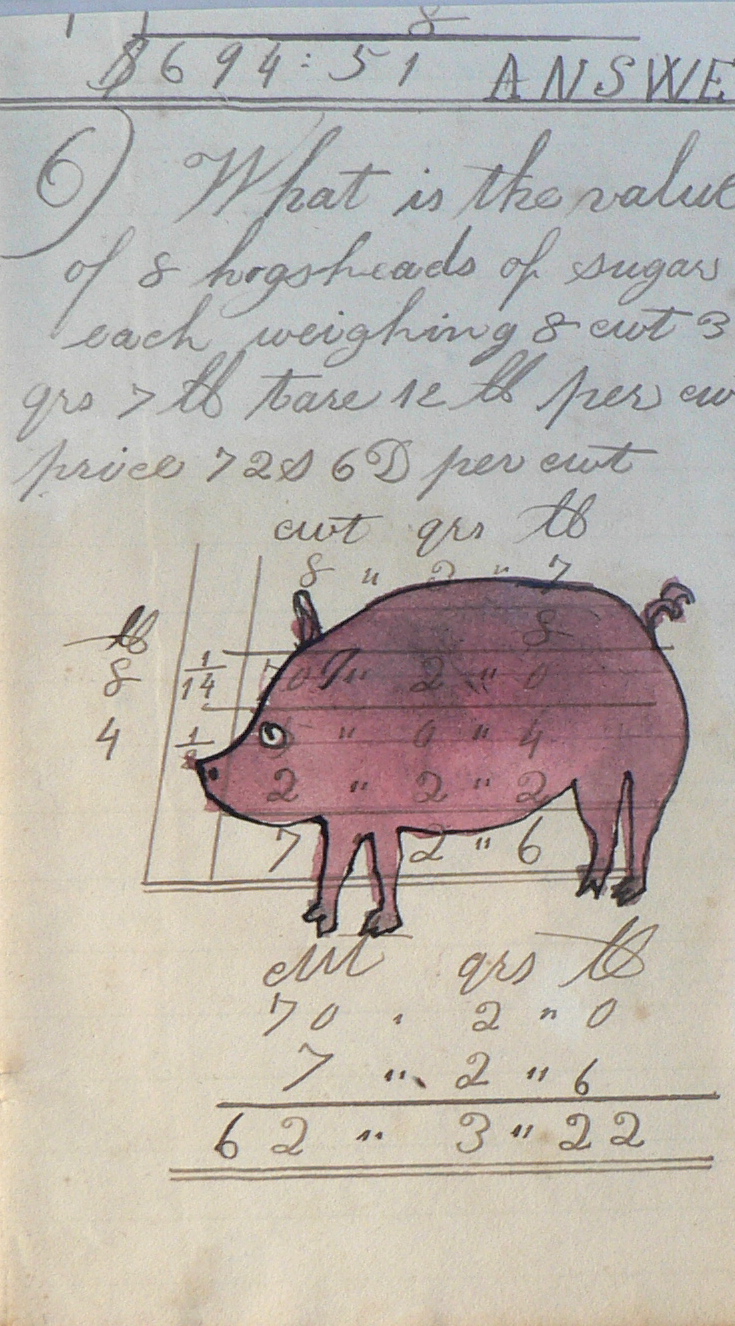 8
$694:51 ANSWE
6) What is the value
of 8 hogsheads of sugar
each weighing 8 cwt 3
qrs 7 lb tare 12 lb per cw
price 72S 6D per cwt
cwt qrs lb
8 " 3 " 7
lb 8
8 1/14 70 " 2 " 0
4 1/2 5 " 0 " 4
2 " 2 " 2
7 2 " 6
cwt qrs lb
70 " 2 " 0
7 " 2 " 6
62 " 3 " 22